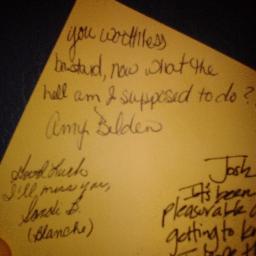 you worthless
bastard, now what the
hell am I supposed to do?
Amy Belden
Good Luck
I'll miss you,
Sandi B.
(Blanche)
Josh
It's been
pleasurable
getting to